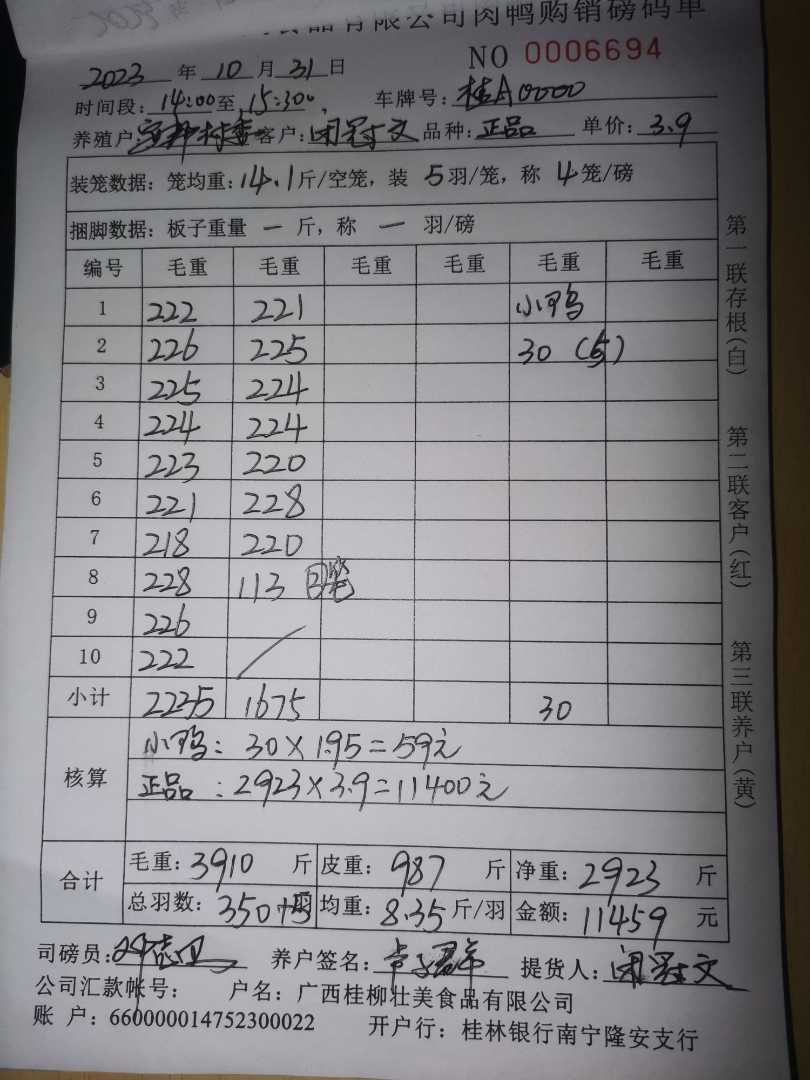 食品有限公司肉鸭购销磅码单
NO 0006694
2023 年 10 月 31 日
时间段: 14:00 至 15:300 车牌号: 桂A0000
养殖户 客户: 闭冠文 品种: 正品 单价: 3.9
装笼数据: 笼均重: 14.1 斤/空笼, 装 5 羽/笼, 称 4 笼/磅
捆脚数据: 板子重量 一 斤, 称 一 羽/磅
编号 毛重 毛重 毛重 毛重 毛重 毛重
1 222 221 小鸭
2 226 225 30 (5)
3 225 224
4 224 224
5 223 220
6 221 228
7 218 220
8 228 113 笼
9 226
10 222 /
小计 2235 1675 30
核算
小鸭: 30×1.95=59元
正品: 2923×3.9=11400元
合计
毛重: 3910 斤 皮重: 987 斤 净重: 2923 斤
总羽数: 350+5 羽 均重: 8.35 斤/羽 金额: 11459 元
司磅员: 养户签名: 提货人: 闭冠文
公司汇款帐号: 户名: 广西桂柳壮美食品有限公司
账 户: 660000014752300022 开户行: 桂林银行南宁隆安支行
第一联存根(白) 第二联客户(红) 第三联养户(黄)